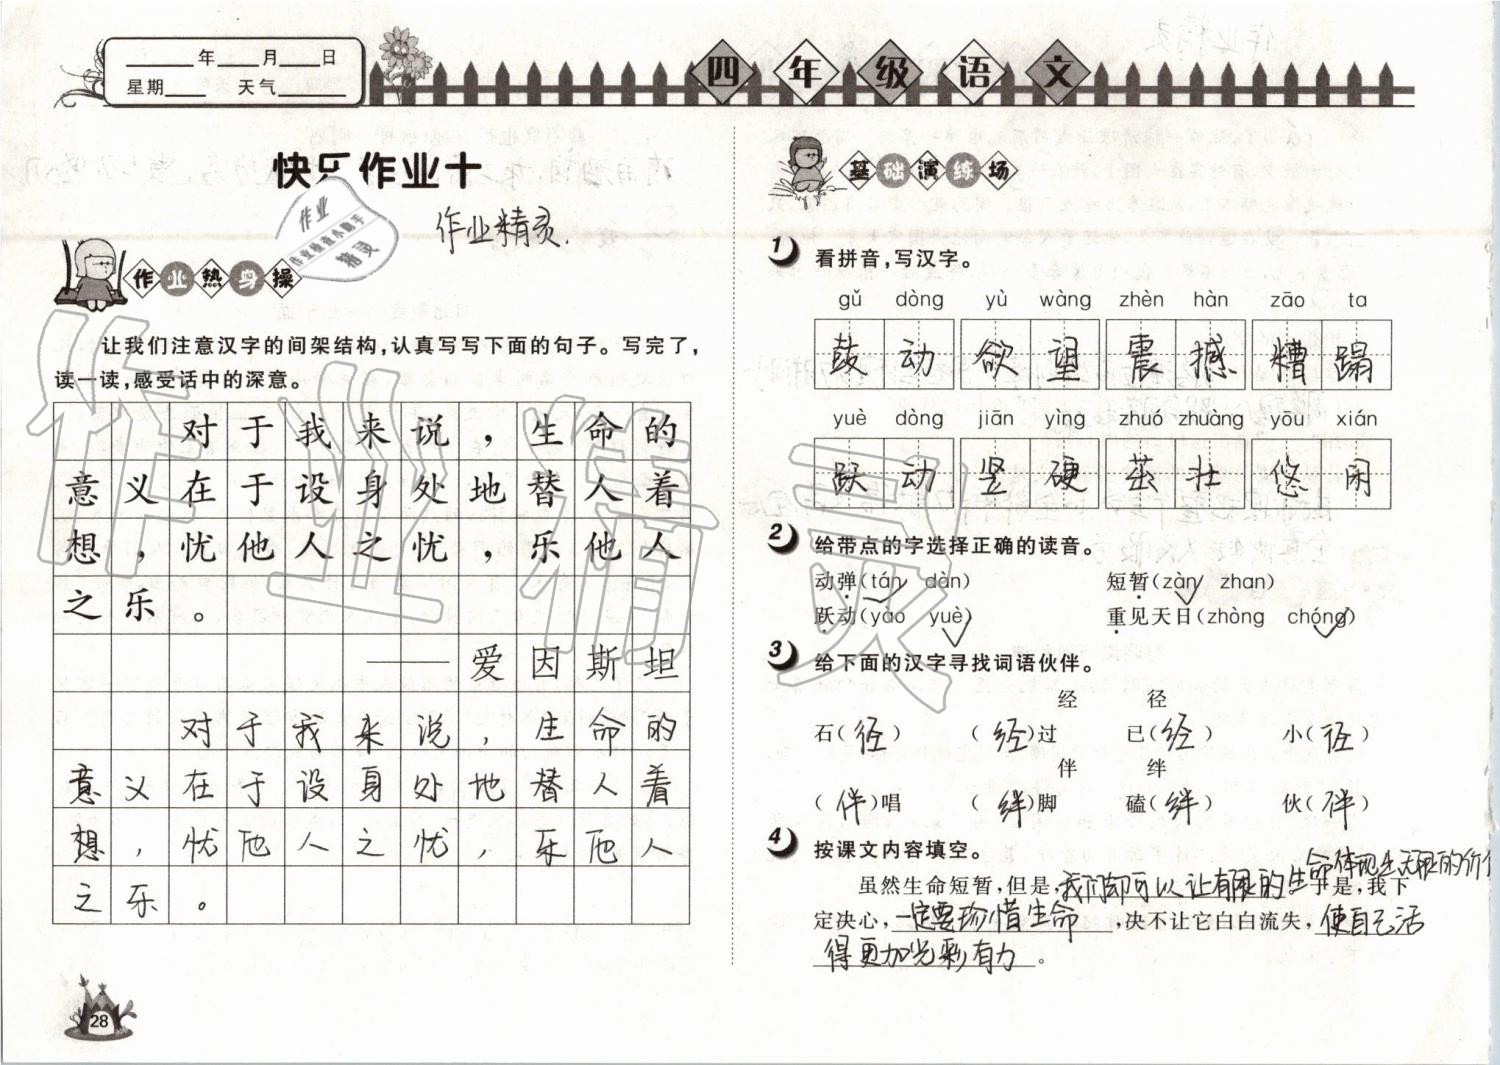 ______年____月____日
星期____ 天气______
四年级语文
快乐作业十
作业精灵.
作业
作业检查小助手
精灵
作业热身操
让我们注意汉字的间架结构,认真写写下面的句子。写完了,
读一读,感受话中的深意。
对于我来说，生命的
意义在于设身处地替人着
想，忧他人之忧，乐他人
之乐。
——爱因斯坦
对于我来说，生命的
意义在于设身处地替人着
想，忧他人之忧，乐他人
之乐。
28
基础演练场
1 看拼音,写汉字。
gǔ dòng yù wàng zhèn hàn zāo ta
鼓动 欲望 震撼 糟蹋
yuè dòng jiān yìng zhuó zhuàng yōu xián
跃动 坚硬 茁壮 悠闲
2 给带点的字选择正确的读音。
动弹(tán√ dàn) 短暂(zàn√ zhan)
跃动(yào yuè√) 重见天日(zhòng chóng√)
3 给下面的汉字寻找词语伙伴。
经 径
石(径) (经)过 已(经) 小(径)
伴 绊
(伴)唱 (绊)脚 磕(绊) 伙(伴)
4 按课文内容填空。
虽然生命短暂,但是,我们却可以让有限的生命体现出无限的价值于是,我下
定决心,一定要珍惜生命,决不让它白白流失,使自己活
得更加光彩有力。
作业精灵